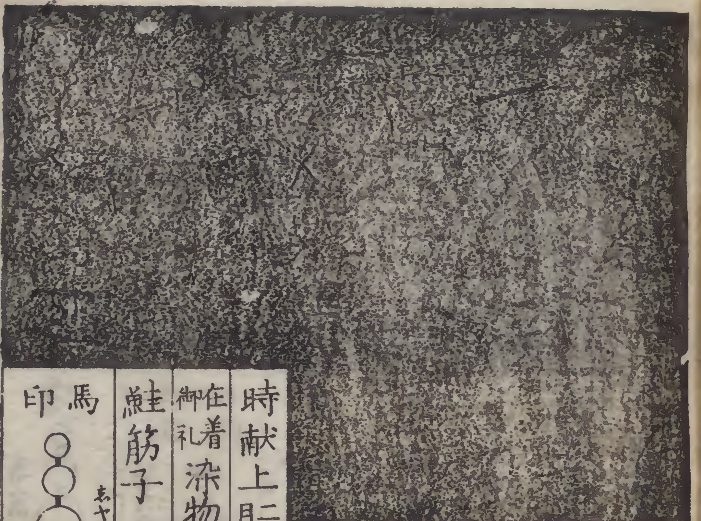 時献上
在着
御礼
染物
鮭筋子
馬印